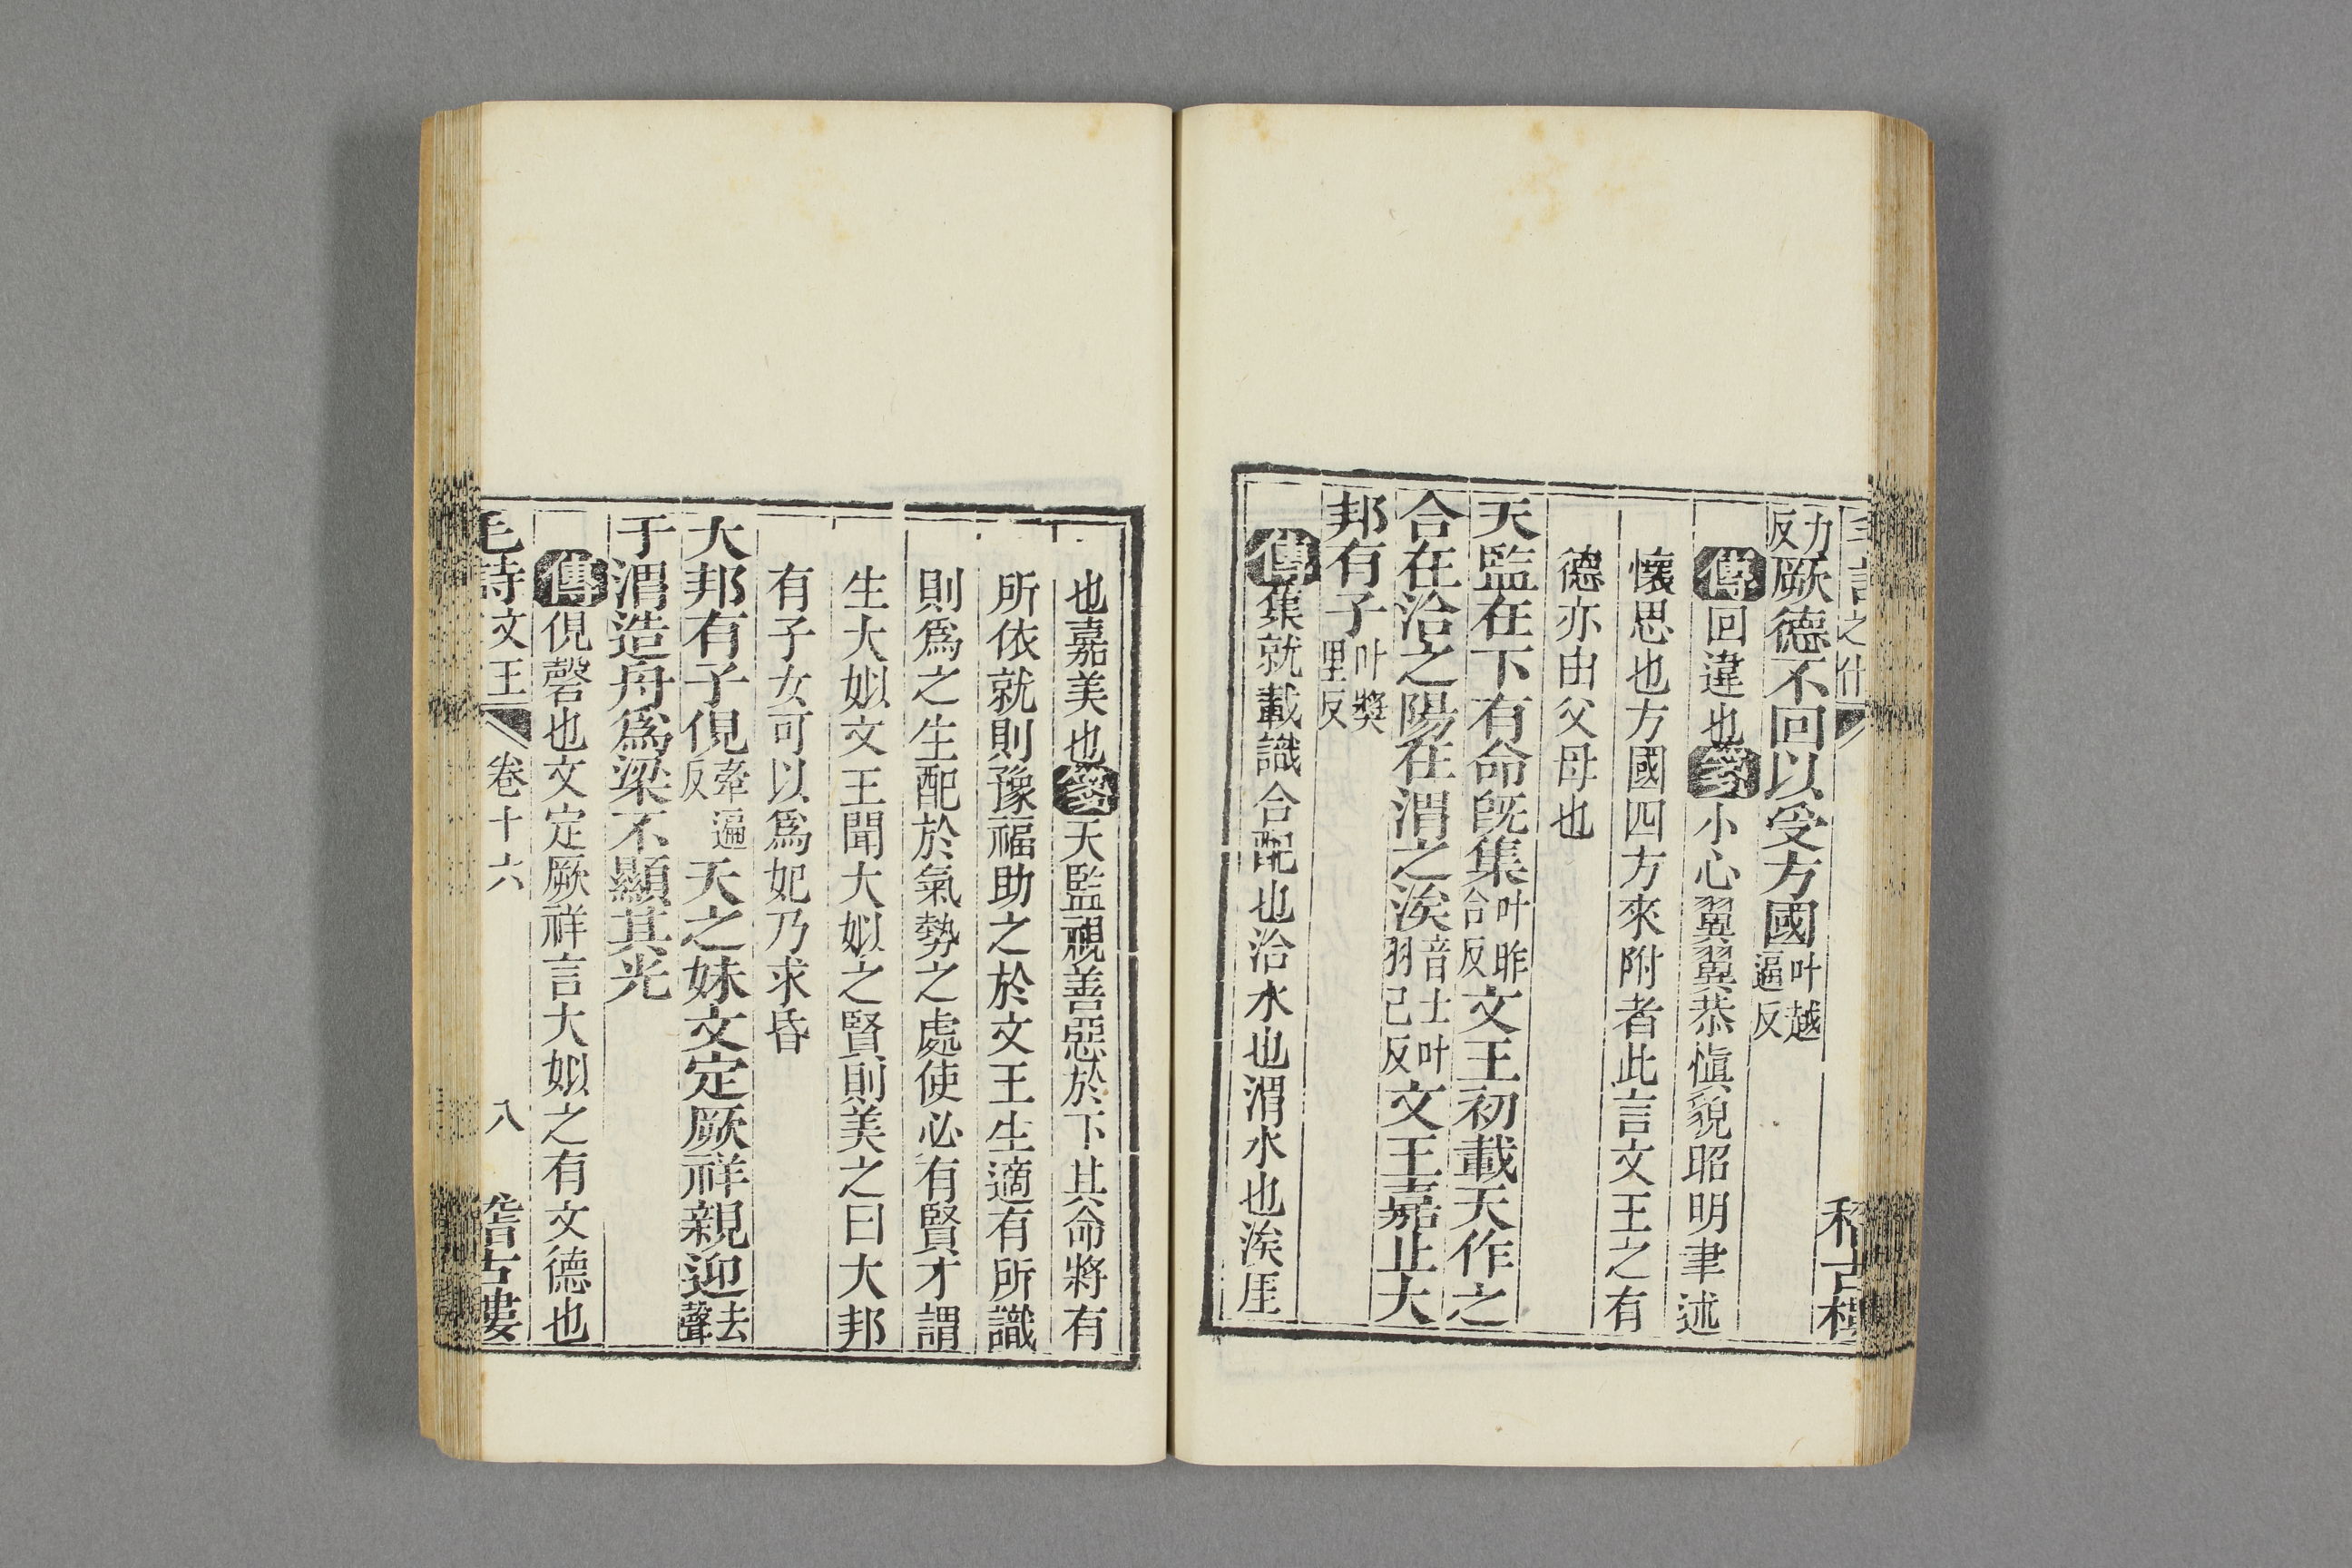 力反厥德不回以受方國叶越逼反
傳回違也箋小心翼翼恭慎貌昭明聿述
懷思也方國四方來附者此言文王之有
德亦由父母也
天監在下有命既集叶昨合反文王初載天作之
合在洽之陽在渭之涘音士叶羽己反文王嘉止大
邦有子叶獎里反
傳集就載識合配也洽水也渭水也涘厓
也嘉美也箋天監視善惡於下其命將有
所依就則豫福助之於文王生適有所識
則爲之生配於氣勢之處使必有賢才謂
生大姒文王聞大姒之賢則美之曰大邦
有子女可以爲妃乃求昏
大邦有子俔牽遍反天之妹文定厥祥親迎去聲
于渭造舟爲梁不顯其光
傳俔磬也文定厥祥言大姒之有文德也
毛詩文王 卷十六 八 稽古樓